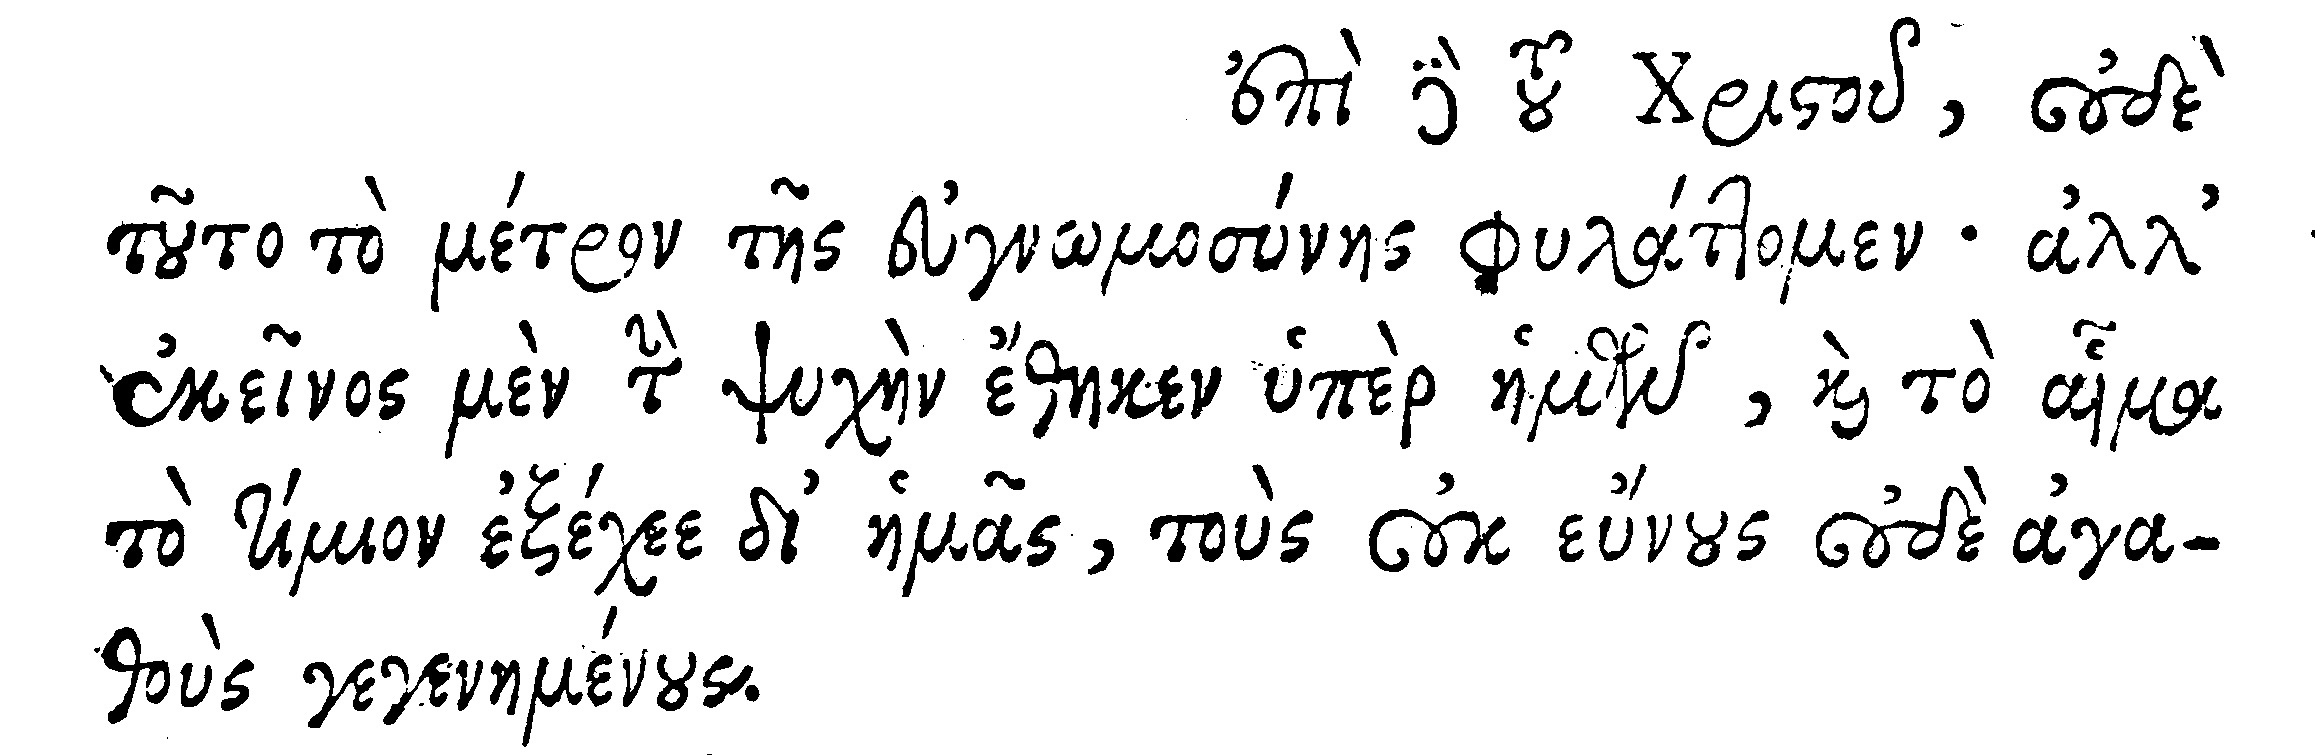 ἐπὶ δὲ τοῦ Χριστοῦ, οὐδὲ
τοῦτο τὸ μέτρον τῆς εὐγνωμοσύνης φυλάττομεν· ἀλλ’
ἐκεῖνος μὲν τὴν ψυχὴν ἔθηκεν ὑπὲρ ἡμῶν, καὶ τὸ αἷμα
τὸ τίμιον ἐξέχεε δι’ ἡμᾶς, τοὺς οὐκ εὔνους οὐδὲ ἀγα-
θοὺς γεγενημένους.